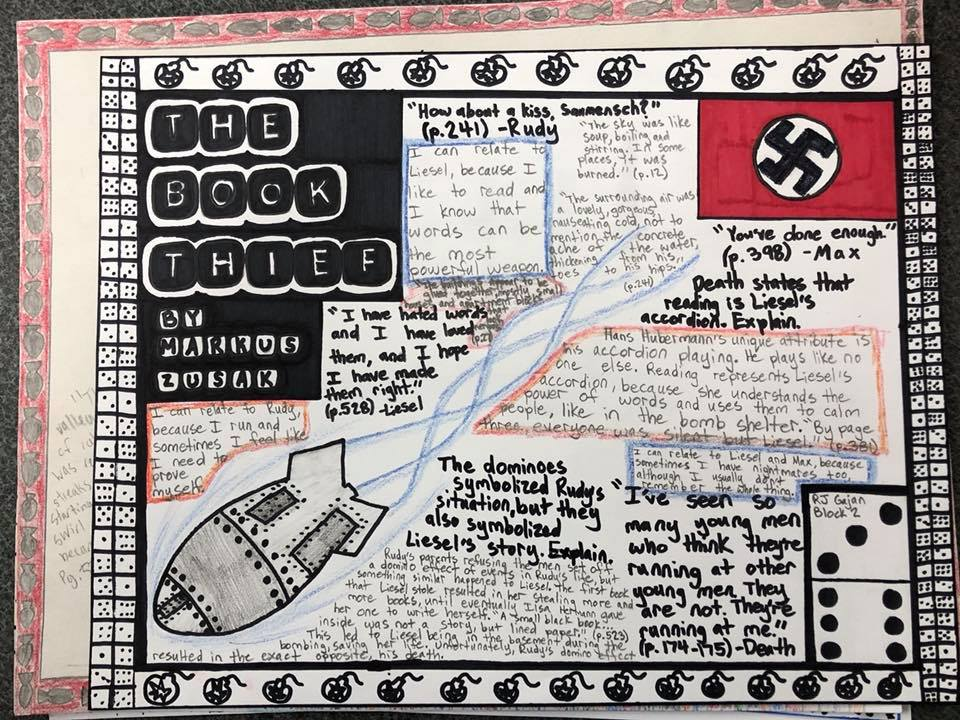 THE
BOOK
THIEF
BY
MARKUS
ZUSAK
"How about a kiss, Saumensch?"
(p.241) -Rudy
"The sky was like
soup, boiling and
stirring. In some
places, it was
burned." (p.12)
I can relate to
Liesel, because I
like to read and
I know that
words can be
the most
powerful weapon.
"The surrounding air was
a lovely, gorgeous,
nauseating cold, not to
mention the concrete
ache of the water,
thickening from his
toes to his hips."
(p.241)
"You've done enough."
(p.398) -Max
Death states that
reading is Liesel's
accordion. Explain.
Hans Hubermann's unique attribute is
his accordion playing. He plays like no
one else. Reading represents Liesel's
accordion, because she understands the
power of words and uses them to calm
people, like in the bomb shelter. "By page
three, everyone was silent but Liesel."
"I have hated words
and I have loved
them, and I hope
I have made
them right."
(p.528) -Liesel
I can relate to Rudy,
because I run and
sometimes I feel like
I need to
prove
myself.
I can relate to Liesel and Max, because
sometimes I have nightmares too,
although I usually don't
remember the whole thing.
The dominoes
symbolized Rudy's
situation, but they
also symbolized
Liesel's story. Explain.
Rudy's parents refusing the men set off
a domino effect of events in Rudy's life, but
something similar happened to Liesel. The first book
that Liesel stole resulted in her stealing more and
more books, until eventually Ilsa Hermann gave
her one to write herself. "A small black book...
inside was not a story, but lined paper." (p.523)
This led to Liesel being in the basement during the
bombing, saving her life. Unfortunately, Rudy's domino effect
resulted in the exact opposite, his death.
"I've seen so
many young men
who think they're
running at other
young men. They
are not. They're
running at me."
(p.174-175) -Death
RJ Gujan
Block 2